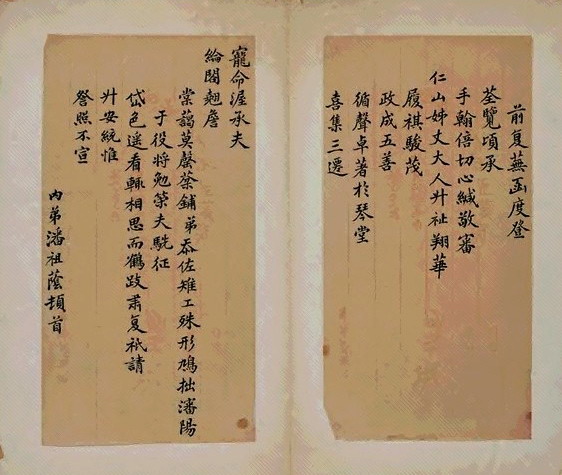 前复蕪函度登
荃覽頃承
手翰倍切心緘敬審
仁山姊丈大人升祉翔華
履祺駿茂
政成五善
循聲卓著於琴堂
喜集三遷
寵命渥承夫
綸閣翹詹
棠蔭莫罄葵鋪弟忝佐雉工殊形鳩拙瀋陽
于役將勉策夫駪征
岱色遥看輒相思而鶴跂肅复祇請
升安統惟
詧照不宣
内弟潘祖蔭頓首